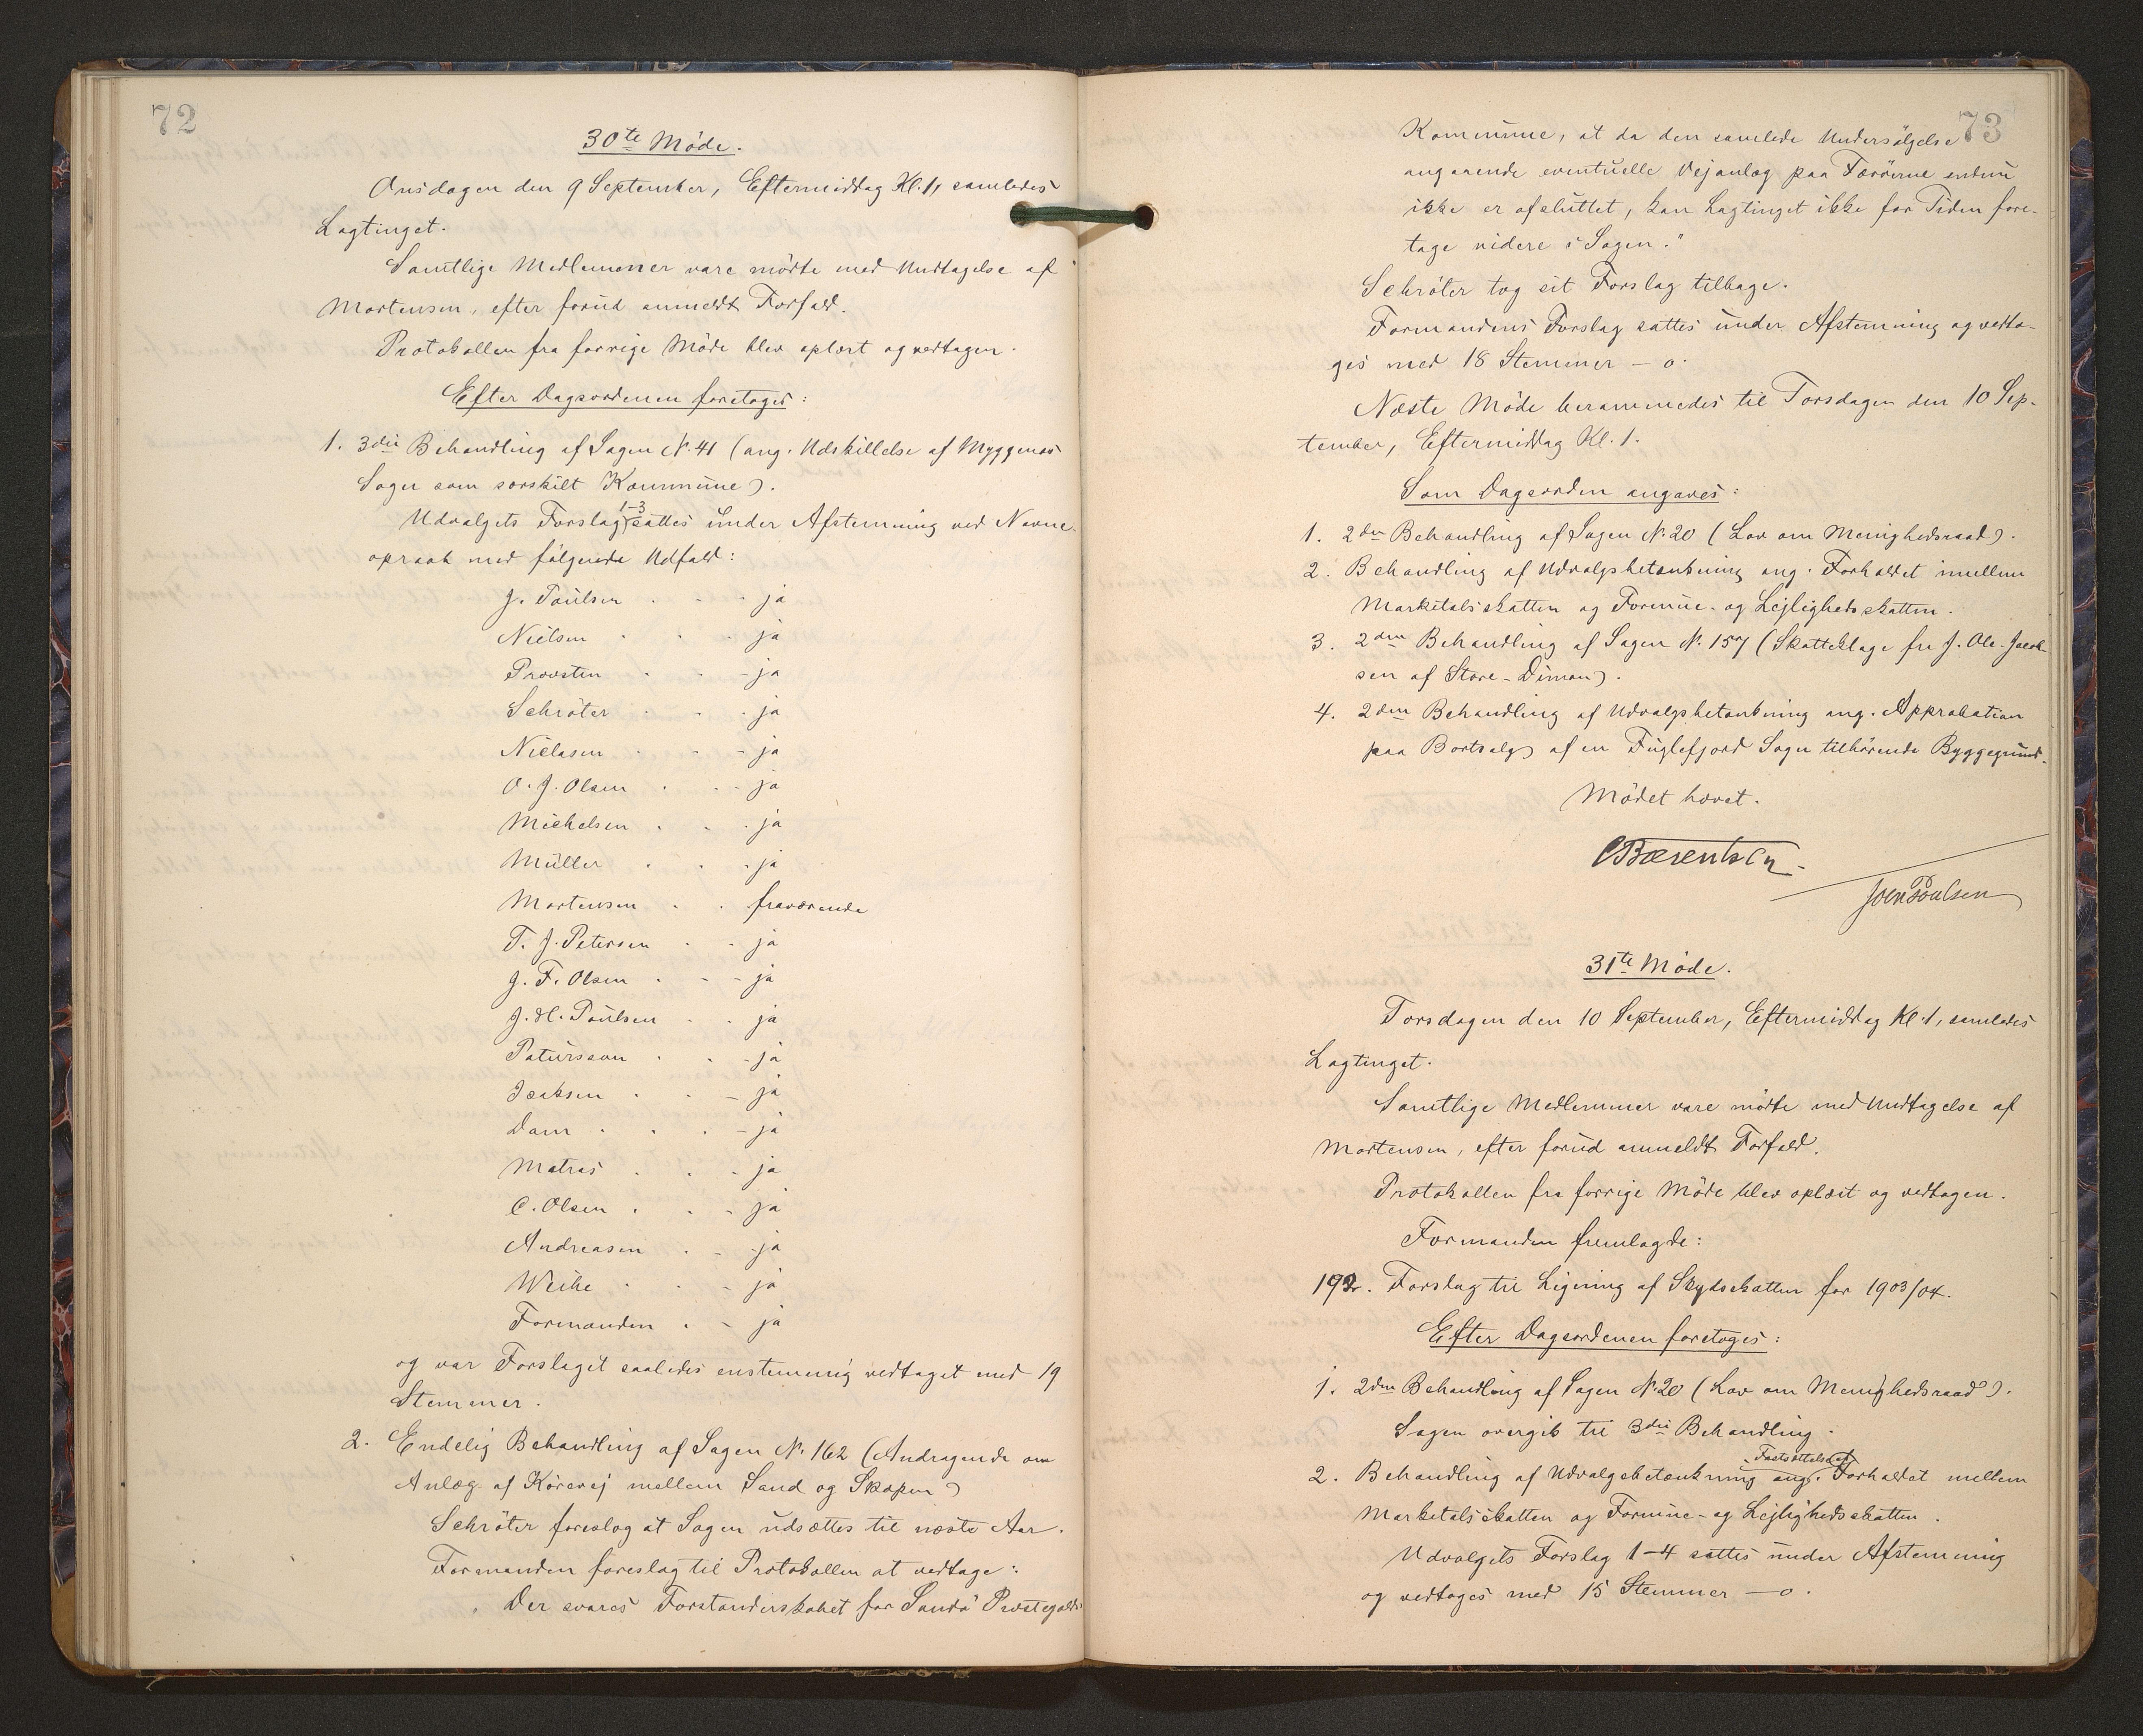 72
30te Møde.
Onsdagen den 9 September, Eftermiddag Kl. 1, samledes
Lagtinget.
Samtlige Medlemmer vare mødte med Undtagelse af
Mortensen, efter forud anmeldt Forfald.
Protokollen fra forrige Møde blev oplæst og vedtagen.
Efter Dagsordenen foretoges:
1. 3die Behandling af Sagen N. 41 (ang. Udskillelse af Myggenæs
Sogn som særskilt Kommune).
Udvalgets Forslag 1-3 sattes under Afstemning ved Navne-
opraab med følgende Udfald:
J. Poulsen . - - ja
Nielsen . . - ja
Provsten . . - ja
Schrøter . . . ja
Niclasen . - - ja
O. J. Olsen . . - ja
Michelsen . . . ja
Müller . . . ja
Mortensen . . fraværende
T. J. Petersen . - ja
J. F. Olsen . - - ja
J. H. Poulsen . . ja
Patursson . . - ja
Isaksen . . - ja
Dam . . . - ja
Matras . . - ja
C. Olsen . . - ja
Andreasen . - - ja
Weihe . . - ja
Formanden . - ja
og var Forslaget saaledes enstemmig vedtaget med 19
Stemmer.
2. Endelig Behandling af Sagen N. 162 (Andragende om
Anlæg af Kørevej mellem Sand og Skopun)
Schrøter foreslog at Sagen udsættes til næste Aar.
Formanden foreslog til Protokollen at vedtage:
„Der svares Forstanderskabet for Sandø Præstegjælds
73
Kommune, at da den samlede Undersøgelse
angaaende eventuelle Vejanlæg paa Færøerne endnu
ikke er afsluttet, kan Lagtinget ikke for Tiden fore-
tage videre i Sagen."
Schrøter tog sit Forslag tilbage.
Formandens Forslag sattes under Afstemning og vedto-
ges med 18 Stemmer – o.
Næste Møde berammedes til Torsdagen den 10 Sep-
tember, Eftermiddag Kl. 1.
Som Dagsorden angaves:
1. 2den Behandling af Sagen N. 20 (Lov om Menighedsraad).
2. Behandling af Udvalgsbetænkning ang. Forholdet imellem
Marketalsskatten og Formue- og Lejlighedsskatten.
3. 2den Behandling af Sagen N. 157 (Skatteklage fra J. Ole Jacob-
sen af Store-Dimon).
4. 2den Behandling af Udvalgsbetænkning ang. Approbation
paa Bortsalg af en Fuglefjord Sogn tilhørende Byggegrund.
Mødet hævet.
CBærentsen
Joen Poulsen
31te Møde.
Torsdagen den 10 September, Eftermiddag Kl. 1, samledes
Lagtinget.
Samtlige Medlemmer vare mødte med Undtagelse af
Mortensen, efter forud anmeldt Forfald.
Protokollen fra forrige Møde blev oplæst og vedtagen.
Formanden fremlagde:
192. Forslag til Ligning af Skydsskatten for 1903/04.
Efter Dagsordenen foretoges:
1. 2den Behandling af Sagen N. 20 (Lov om Menighedsraad).
Sagen overgik til 3die Behandling.
2. Behandling af Udvalgsbetænkning ang. Fastsættelse af Forholdet mellem
Marketalsskatten og Formue- og Lejlighedsskatten.
Udvalgets Forslag 1-4 sattes under Afstemning
og vedtoges med 15 Stemmer – o.